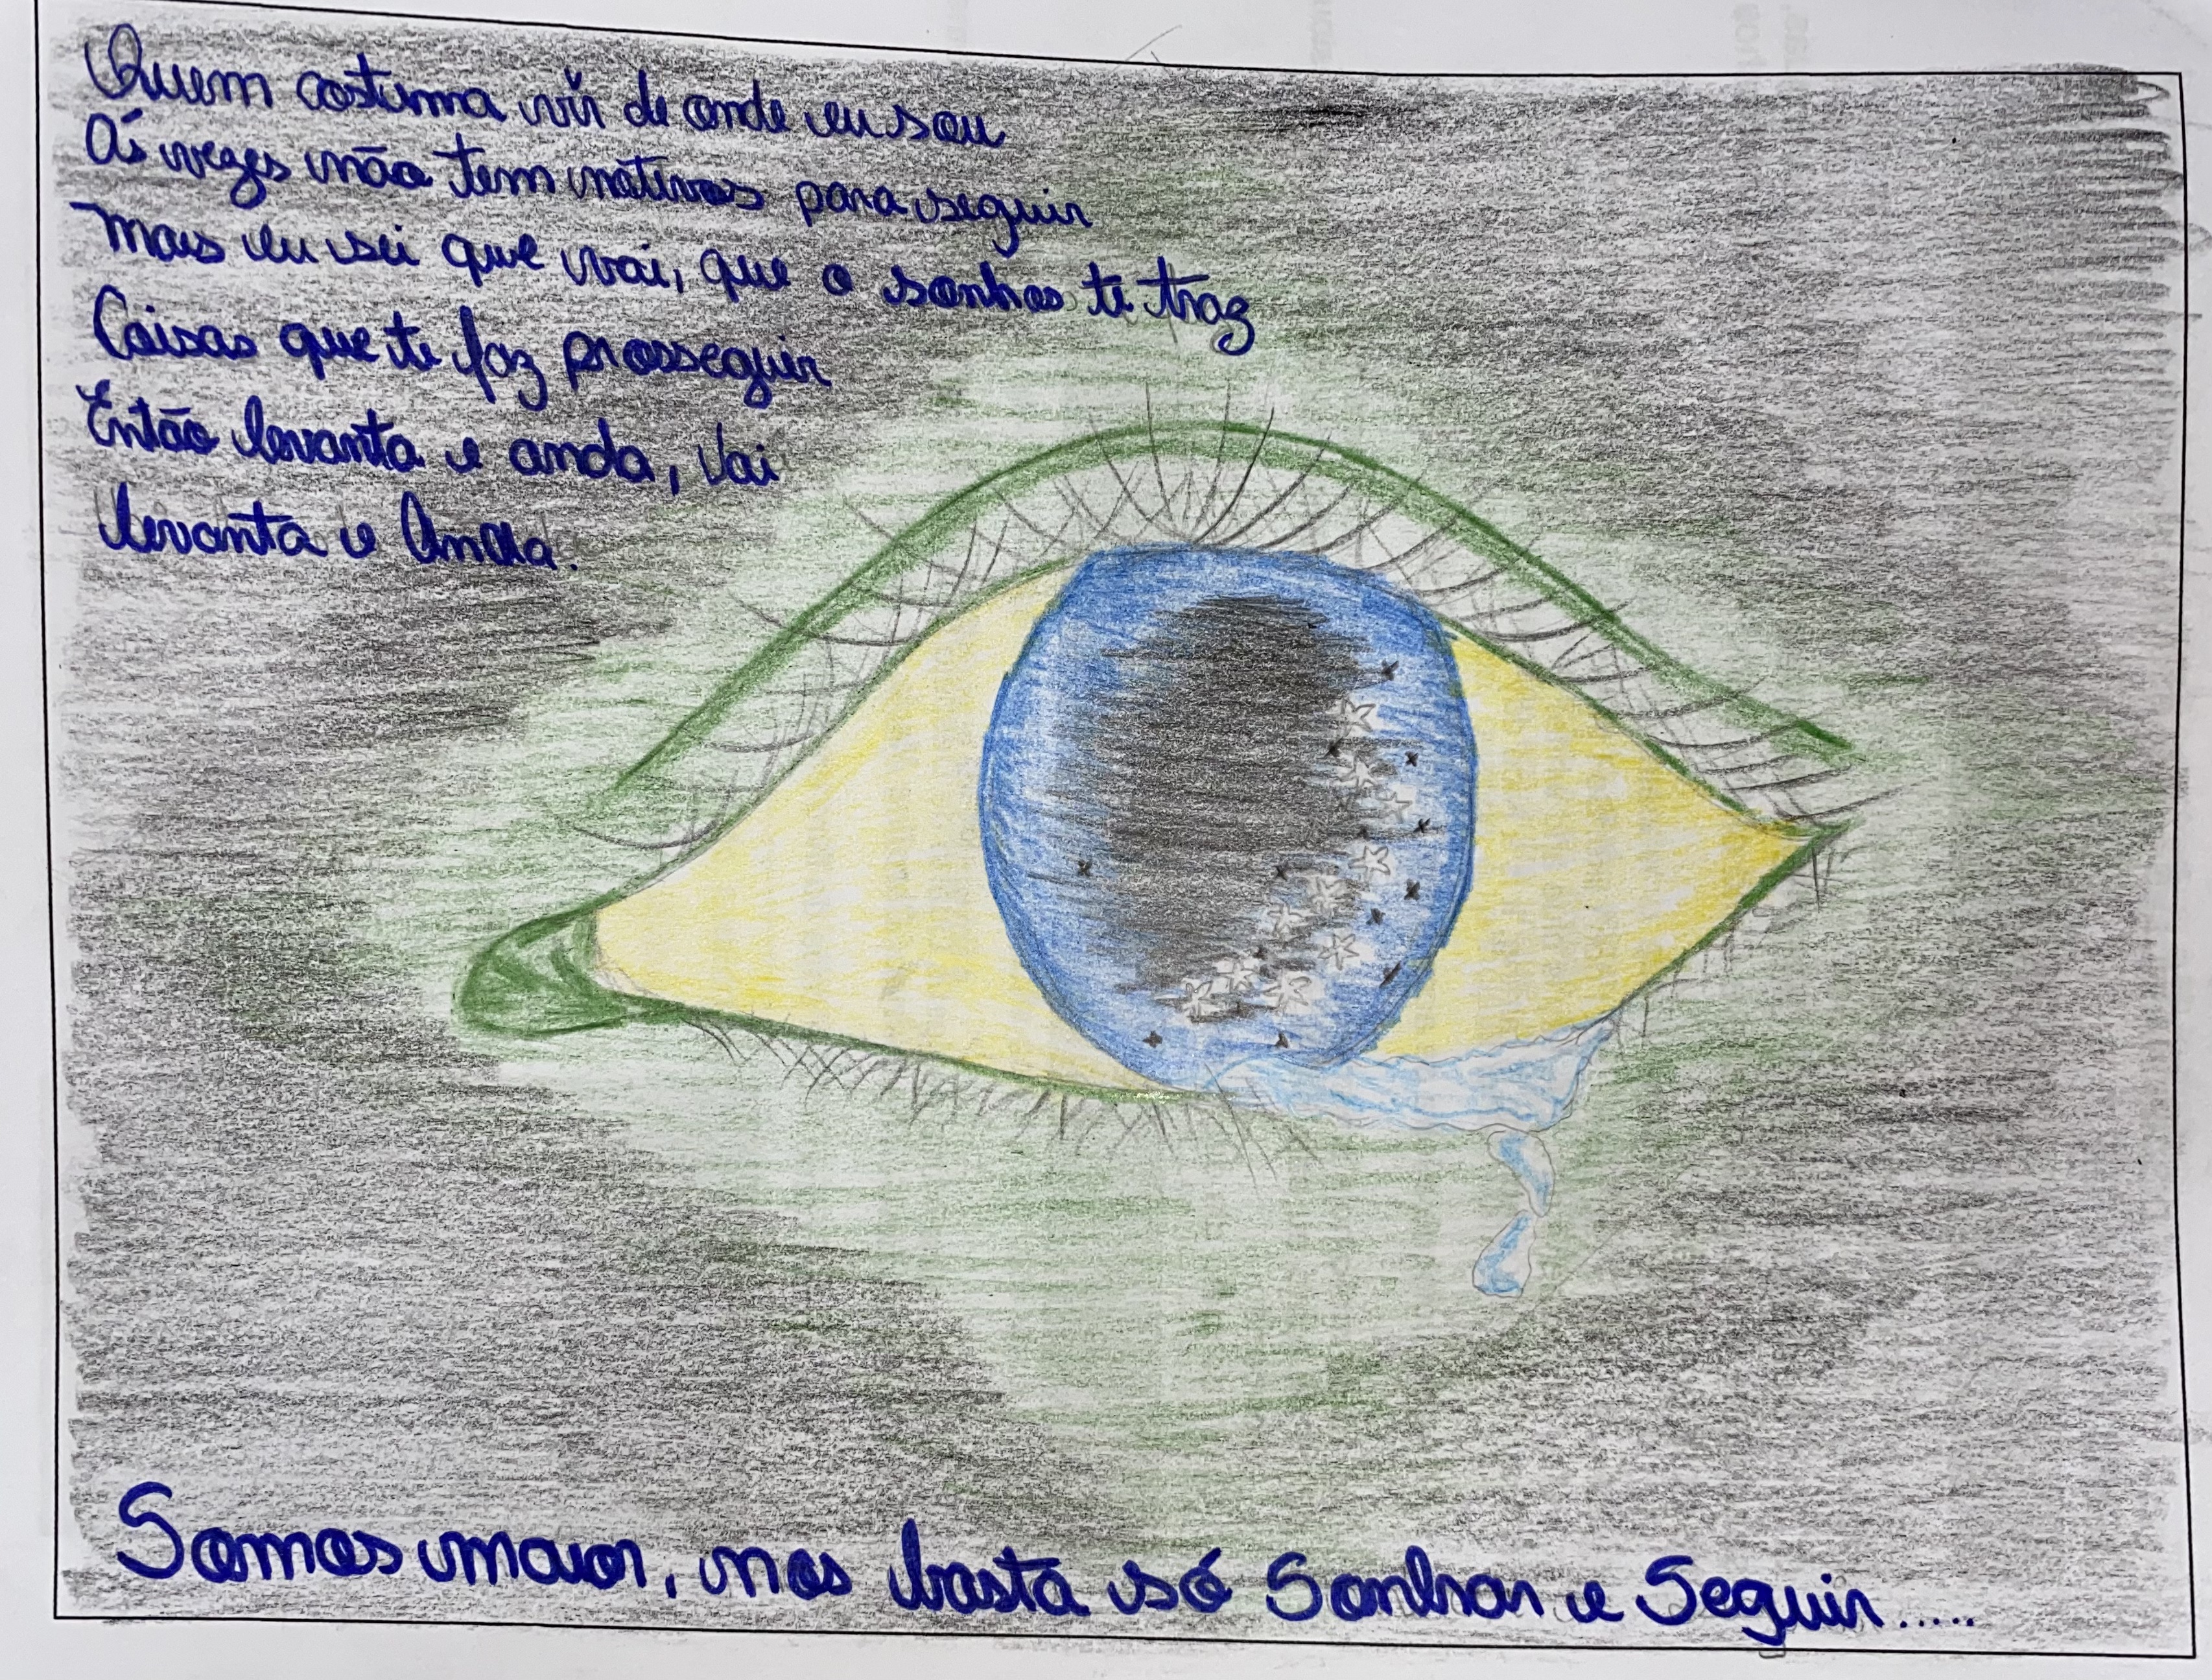 Quem costuma vir de onde eu sou
Ás vezes não tem motivos para seguir
Mais eu sei que vai, que o sonho te traz
Coisas que te faz prosseguir
Então levanta e anda, Vai
levanta e Anda.
Somos maior, nos basta só Sonhar e Seguir.....